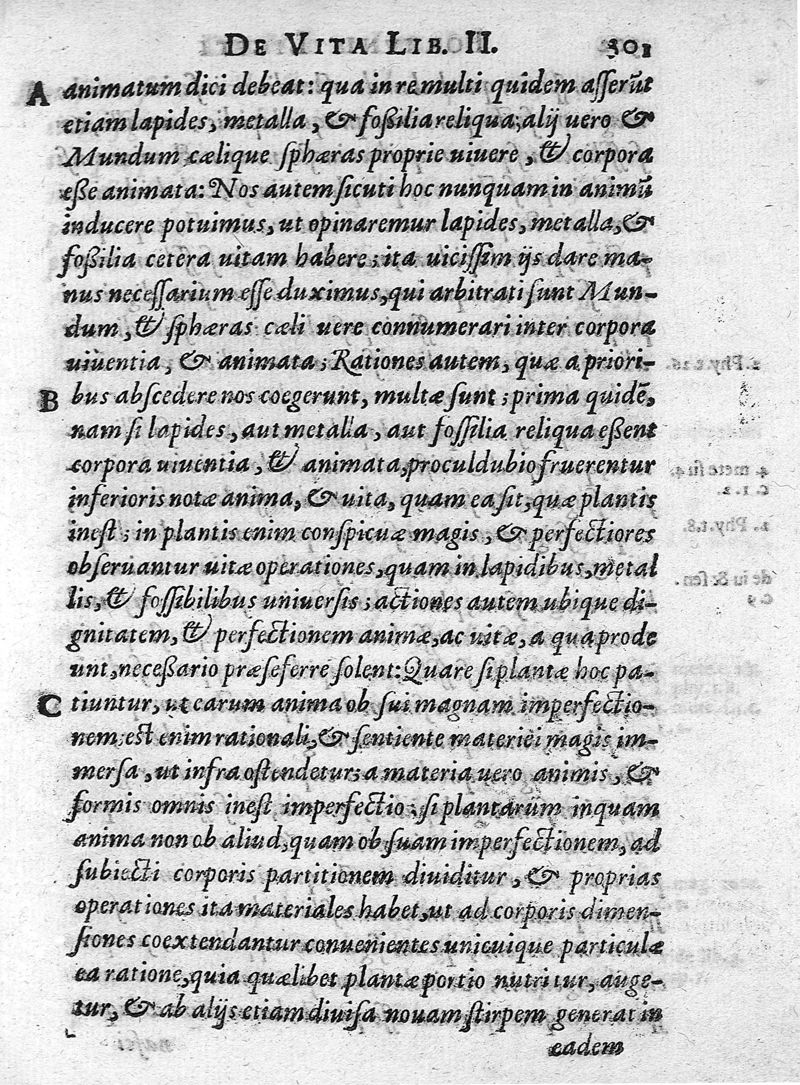 DE VITA LIB. II. 301
A animatum dici debeat: qua in re multi quidem asserūt
etiam lapides, metalla, & foßilia reliqua; alij uero &
Mundum cælique sphæras proprie uiuere, & corpora
eße animata: Nos autem sicuti hoc nunquam in animū
inducere potuimus, ut opinaremur lapides, metalla, &
foßilia cetera uitam habere; ita uicissim ijs dare ma-
nus necessarium esse duximus, qui arbitrati sunt Mun-
dum, & sphæras cæli uere connumerari inter corpora
uiuentia, & animata; Rationes autem, quæ a priori-
B bus abscedere nos coegerunt, multæ sunt; prima quidē,
nam si lapides, aut metalla, aut fossilia reliqua eßent
corpora uiuentia, & animata, proculdubio fruerentur
inferioris notæ anima, & uita, quam ea sit, quæ plantis
inest; in plantis enim conspicuæ magis, & perfectiores
obseruantur uitæ operationes, quam in lapidibus, metal
lis, & fossibilibus uniuersis; actiones autem ubique di-
gnitatem, & perfectionem animæ, ac uitæ, a qua prode
unt, neceßario præseferre solent: Quare si plantæ hoc pa-
C tiuntur, ut earum anima ob sui magnam imperfectio-
nem; est enim rationali, & sentiente materiei magis im-
mersa, ut infra ostendetur; a materia uero animis, &
formis omnis inest imperfectio; si plantarum inquam
anima non ob aliud, quam ob suam imperfectionem, ad
subiecti corporis partitionem diuiditur, & proprias
operationes ita materiales habet, ut ad corporis dimen-
siones coextendantur conuenientes unicuique particulæ
ea ratione, quia quælibet plantæ portio nutritur, auge-
tur, & ab alijs etiam diuisa nouam stirpem generat in
eadem